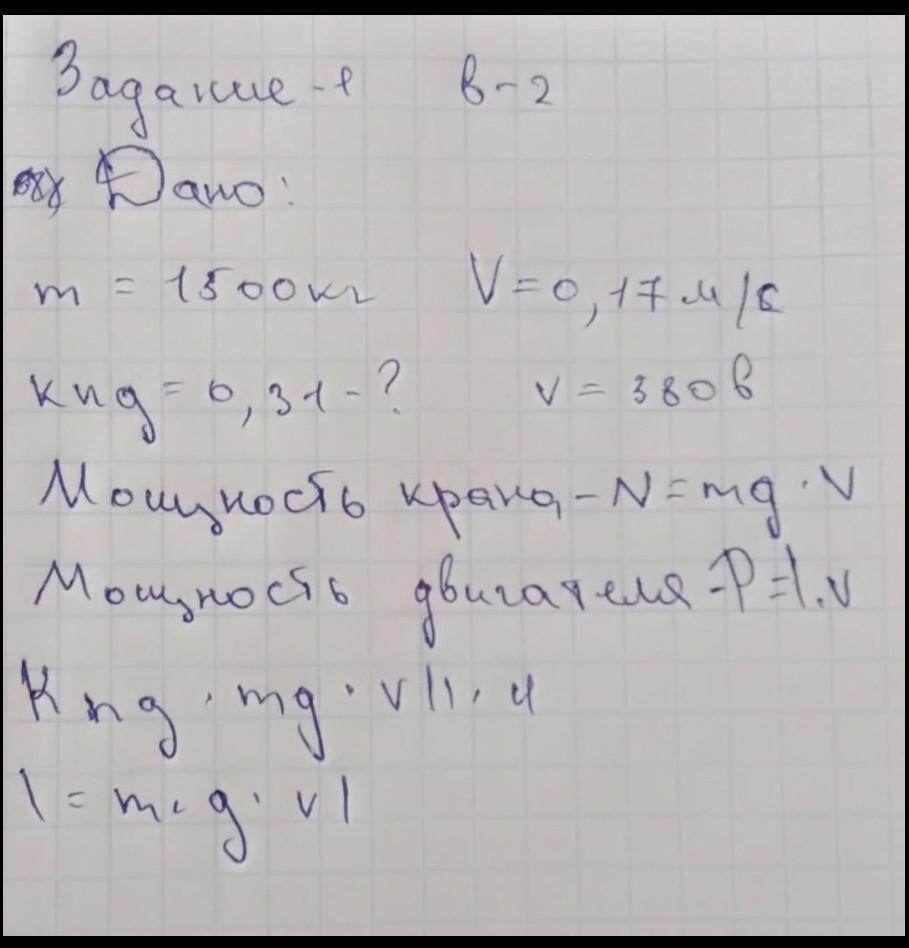 Задание-1 в-2
Дано:
m = 1500кг V=0,17м/с
кпд = 0,31-? v = 380в
Мощность крана-N=mg·V
Мощность двигателя-P=I.v
Кпд · mg · v|1· 4
I = m· g· v|